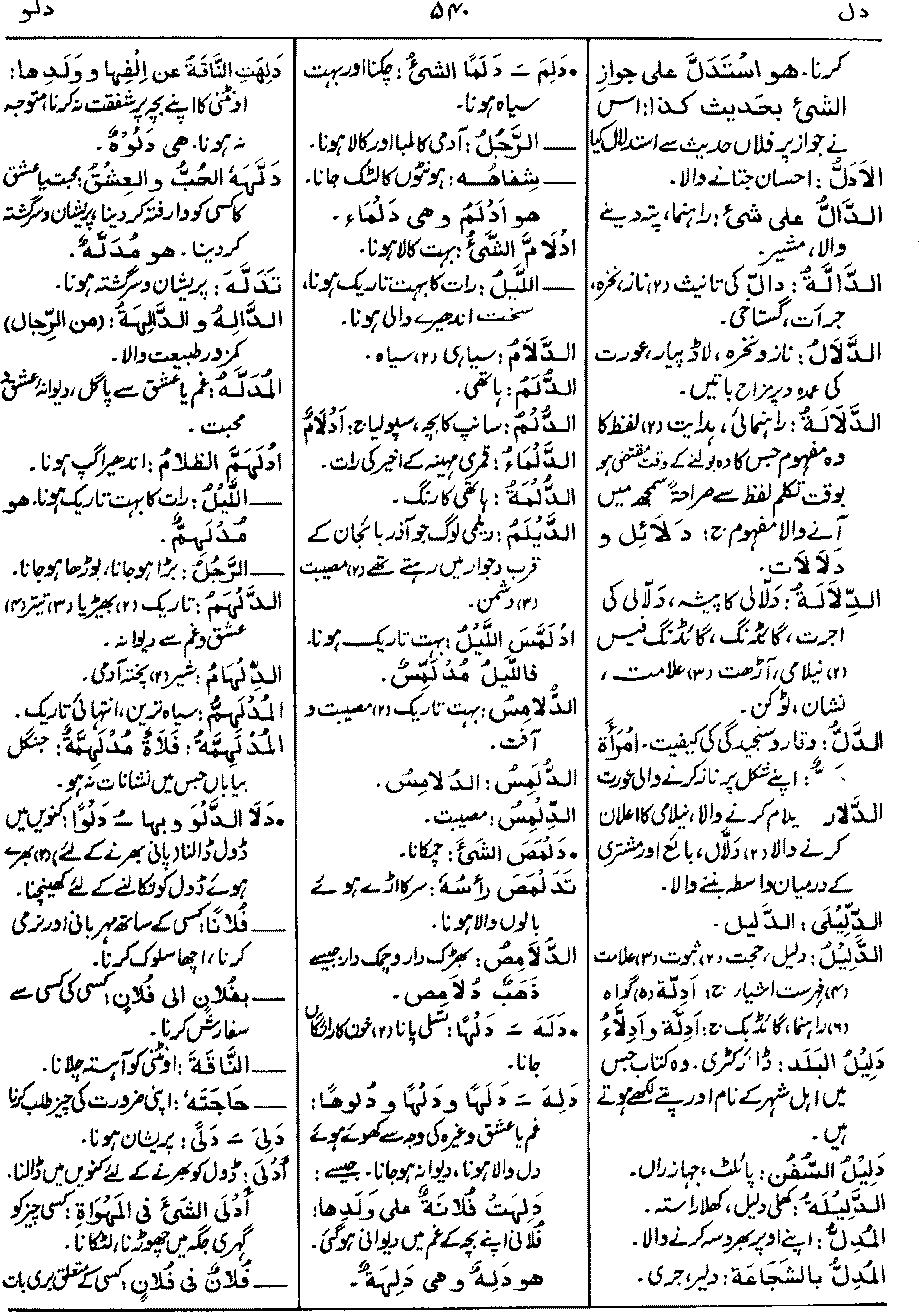 دل ۵۴۰ دلو
کرنا۔ هو اسْتَدَلَّ على جوازِ
الشئ بحديث كذا: اس
نے جواز پر فلاں حدیث سے استدلال کیا
الأدَلُّ: احسان جتانے والا۔
الدَّالُّ على شئ: راہنما، پتہ دینے
والا، مشیر۔
الدَّالَّةُ: دالّ کی تانیث (۲) ناز، نخرہ،
جرأت، گستاخی۔
الدَّلَالُ: ناز و نخرہ، لاڈ پیار، عورت
کی عمدہ و پر مزاح باتیں۔
الدَّلَالَةُ: راہنمائی، ہدایت (۲) لفظ کا
وہ مفہوم جس کا وہ بولنے کے وقت مقتضی ہو
بوقت تکلم لفظ سے صراحۃً سمجھ میں
آنے والا مفہوم ج: دَلَائِل و
دَلَالَات۔
الدِّلَالَةُ: دلّالی کا پیشہ، دلّالی کی
اجرت، گائڈنگ، گائڈنگ فیس
(۲) نیلامی، آڑھت (۳) علامت،
نشان، ٹوکن۔
الدَّلُّ: وقار و سنجیدگی کی کیفیت۔ امْرَأَة
: اپنے شکل پر ناز کرنے والی عورت
الدَّلار کرنے والا، نیلامی کا اعلان
کرنے والا (۲) دلّال، بائع اور مشتری
کے درمیان واسطہ بننے والا۔
الدِّلِّيْلٰى: الدَّليل۔
الدَّلِيْلُ: دلیل، حجت (۲) ثبوت (۳) علامت
(۴) فہرست اشیاء ج: أدِلَّة (۵) گواہ
(۶) راہنما، گائڈ بک ج: أدِلَّة و أدِلَّاءُ
دَلِيْلُ البَلَد: ڈائرکٹری۔ وہ کتاب جس
میں اہل شہر کے نام اور پتے لکھے ہوتے
ہیں۔
دَلِيْلُ السُّفُن: پائلٹ، جہاز راں۔
الدَّلِيْلَة: کھلی دلیل، کھلا راستہ۔
المُدِلُّ: اپنے اوپر بھروسہ کرنے والا۔
المُدِلُّ بالشَّجَاعَة: دلیر، جری۔
• دَلِمَ ـَ دَلَمًا الشئُ: چکنا اور بہت
سیاہ ہونا۔
ــــ الرَّجُلُ: آدمی کا لمبا اور کالا ہونا۔
ــــ شِفاهُه: ہونٹوں کا لٹک جانا۔
هو أدْلَمُ و هي دَلْمَاء۔
ادْلَامَّ الشَّئُ: بہت کالا ہونا۔
ــــ اللَّيلُ: رات کا بہت تاریک ہونا،
سخت اندھیرے والی ہونا۔
الدَّلَامُ: سیاہی (۲) سیاہ۔
الدَّلَمُ: ہاتھی۔
الدُّلَمُ: سانپ کا بچہ، سپولیا ج: أدْلَامٌ
الدَّلْمَاءُ: قمری مہینہ کے اخیر کی رات۔
الدُّلْمَةُ: ہاتھی کا رنگ۔
الدَّيْلَمُ: دیلمی لوگ جو آذربائجان کے
قرب و جوار میں رہتے تھے (۲) مصیبت
(۳) دشمن۔
ادْلَمَّسَ اللَّيلُ: بہت تاریک ہونا۔
فاللَّيلُ مُدْلَمِّسٌ۔
الدُّلَامِسُ: بہت تاریک (۲) مصیبت و
آفت۔
الدُّلَمِسُ: الدُلامِسُ۔
الدِّلْمِسُ: مصیبت۔
• دَلْمَصَ الشئَ: چمکانا۔
تَدَلْمَصَ رأسُهٗ: سر کا اڑے ہوئے
بالوں والا ہونا۔
الدُّلَامِصُ: بھڑک دار و چمک دار جیسے
ذَهَبٌ دُلَامِص۔
• دَلَهَ ـَ دَلْهًا: تسلی پانا (۲) خون کا رائگاں
جانا۔
دَلِهَ ـَ دَلَهًا و دَلْهًا و دُلُوهًا:
غم یا عشق وغیرہ کی وجہ سے کھوئے ہوئے
دل والا ہونا، دیوانہ ہو جانا۔ جیسے:
دَلِهَتْ فُلَانَةٌ على ولَدِها:
فلانی اپنے بچہ کے غم میں دیوانی ہو گئی۔
هو دَلِهٌ و هي دَلِهَةٌ۔
دَلِهَتِ النَّاقَةُ عن إلْفِها و ولَدِها:
اونٹنی کا اپنے بچہ پر شفقت نہ کرنا، متوجہ
نہ ہونا۔ هي دَلُوْهٌ۔
دَلَّهَهُ الحُبُّ و العِشْقُ: محبت یا عشق
کا کسی کو وارفتہ کر دینا، پریشان و سرگشتہ
کر دینا۔ هو مُدَلَّهٌ۔
تَدَلَّهَ: پریشان و سرگشتہ ہونا۔
الدَّالِهُ و الدَّالِهَةُ: (من الرِّجال)
کمزور طبیعت والا۔
المُدَلَّهُ: غم یا عشق سے پاگل، دیوانۂ عشق و
محبت۔
ادْلَهَمَّ الظلامُ: اندھیرا گھپ ہونا۔
ــــ اللَّيْلُ: رات کا بہت تاریک ہونا۔ هو
مُدْلَهِمٌّ۔
ــــ الرَّجُلُ: بڑا ہو جانا، بوڑھا ہو جانا۔
الدَّلْهَمُ: تاریک (۲) بھیڑیا (۳) تیتر (۴)
عشق و غم سے دیوانہ۔
الدِّلْهَامُ: شیر (۲) پختہ آدمی۔
المُدْلَهِمُّ: سیاہ ترین، انتہائی تاریک۔
المُدْلَهِمَّةُ: فَلَاةٌ مُدْلَهِمَّةٌ: جنگل
بیاباں جس میں نشانات نہ ہو۔
• دَلَا الدَّلْوَ و بها ـُ دَلْوًا: کنویں میں
ڈول ڈالنا (پانی بھرنے کے لئے) (۲) بھرے
ہوئے ڈول کو نکالنے کے لئے کھینچنا۔
ــــ فُلَانًا: کسی کے ساتھ مہربانی اور نرمی
کرنا، اچھا سلوک کرنا۔
ــــ بفُلَانٍ إلى فُلَانٍ: کسی کی کسی سے
سفارش کرنا۔
ــــ النَّاقَةَ: اونٹنی کو آہستہ چلانا۔
ــــ حَاجَتَهٗ: اپنی ضرورت کی چیز طلب کرنا
دَلِيَ ـَ دَلًى: پریشان ہونا۔
أدْلَى: ڈول کو بھرنے کے لئے کنویں میں ڈالنا۔
أدْلَى الشئَ في المَهْوَاةِ: کسی چیز کو
گہری جگہ میں چھوڑنا، لٹکانا۔
ــــ فُلَانٌ في فُلَانٍ: کسی کے متعلق بری بات